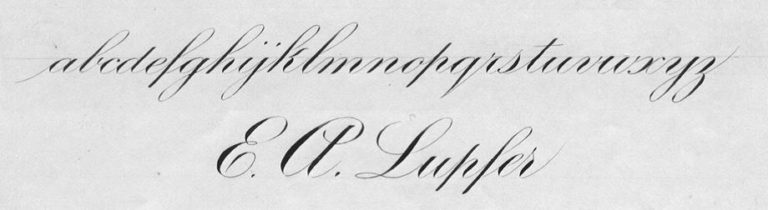 abcdefghijklmnopqrstuvwxyz
E. A. Lupfer